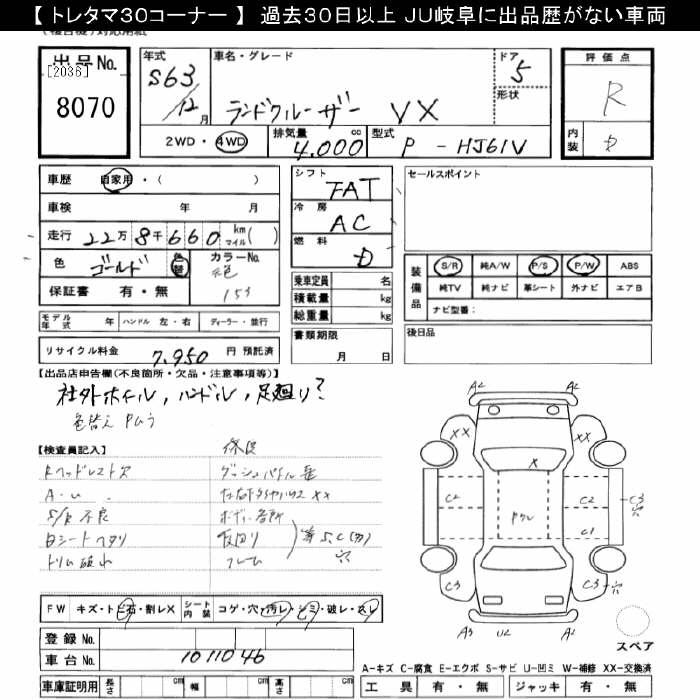 【 トレタマ30コーナー 】 過去30日以上 JU岐阜に出品歴がない車両
出品No.
[2036]
8070
年式
S63
12月
車名・グレード
ランドクルーザー VX
ドア
5
形状
評価点
R
内装
D
2WD・4WD
排気量
4,000cc
型式
P - HJ61V
車歴 自家用・( )
車検 年 月
走行 22万8千660 km マイル( )
色 ゴールド 色替 カラーNo.
保証書 有・無
シフト
FAT
冷房
AC
燃料
D
乗車定員 名
積載量 kg
総重量 kg
セールスポイント
装備品
S/R 純A/W P/S P/W ABS
純TV 純ナビ 革シート 外ナビ エアB
ナビ型番:
モデル年式 年 ハンドル 左・右 ディーラー・並行
リサイクル料金 7,950 円 預託済
書類期限
月 日
後日品
【出品店申告欄(不良箇所・欠品・注意事項等)】
社外ホイル, ハンドル, 足廻り?
色替え Pムラ
【検査員記入】
Rヘッドレスト欠
S/R 不良
シートヘタリ
トリム破れ
フレーム
S,C(穴)
A2 A2
XX XX
X
C2 C2 C3 穴
C1
C3 C3 穴
A3 U2 A2
スペア
FW キズ・トビ石・割レX シート内装 コゲ・穴・汚レ・シミ・破レ・スレ
登録No.
車台No. 1011046
A-キズ C-腐食 E-エクボ S-サビ U-凹ミ W-補修 XX-交換済
車庫証明用 長さ cm 幅 cm 高さ cm
工具 有・無 ジャッキ 有・無